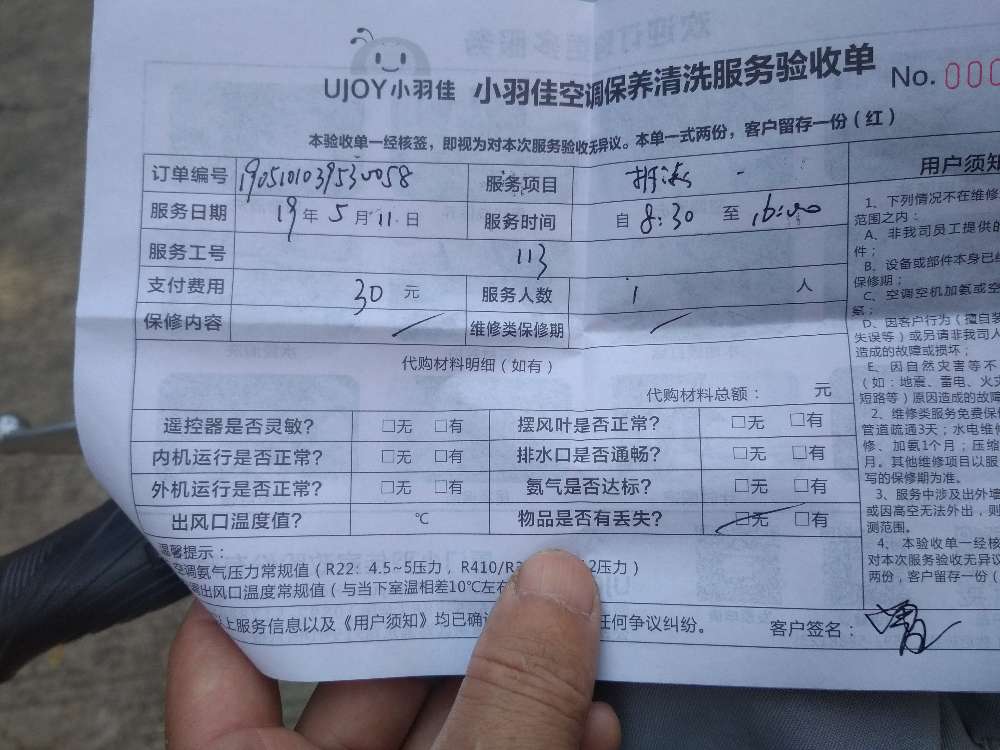 UJOY小羽佳 小羽佳空调保养清洗服务验收单 No. 000
本验收单一经核签，即视为对本次服务验收无异议。本单一式两份，客户留存一份（红）
订单编号 服务项目
服务日期 19年5月11日 服务时间 自 8:30 至 16:00
服务工号 113
支付费用 30 元 服务人数 1 人
保修内容 维修类保修期
代购材料明细（如有）
代购材料总额： 元
遥控器是否灵敏? □无 □有 摆风叶是否正常? □无 □有
内机运行是否正常? □无 □有 排水口是否通畅? □无 □有
外机运行是否正常? □无 □有 氨气是否达标? □无 □有
出风口温度值? ℃ 物品是否有丢失? □无 □有
温馨提示：
空调氨气压力常规值（R22：4.5~5压力，R410/R 2压力）
出风口温度常规值（与当下室温相差10℃左右
上服务信息以及《用户须知》均已确 任何争议纠纷。 客户签名：
用户须知
1、下列情况不在维修
范围之内：
A、非我司员工提供的
件；
B、设备或部件本身已
保修期；
C、空调空机加氨或空
氨；
D、因客户行为（擅自
失误等）或另请非我司人
造成的故障或损坏；
E、因自然灾害等不
（如：地震、雷电、火
短路等）原因造成的故障
2、维修类服务免费保
管道疏通3天；水电维
修、加氨1个月；压缩
月。其他维修项目以服
写的保修期为准。
3、服务中涉及出外墙
或因高空无法外出，则
测范围。
4、本验收单一经核
对本次服务验收无异议
两份，客户留存一份（